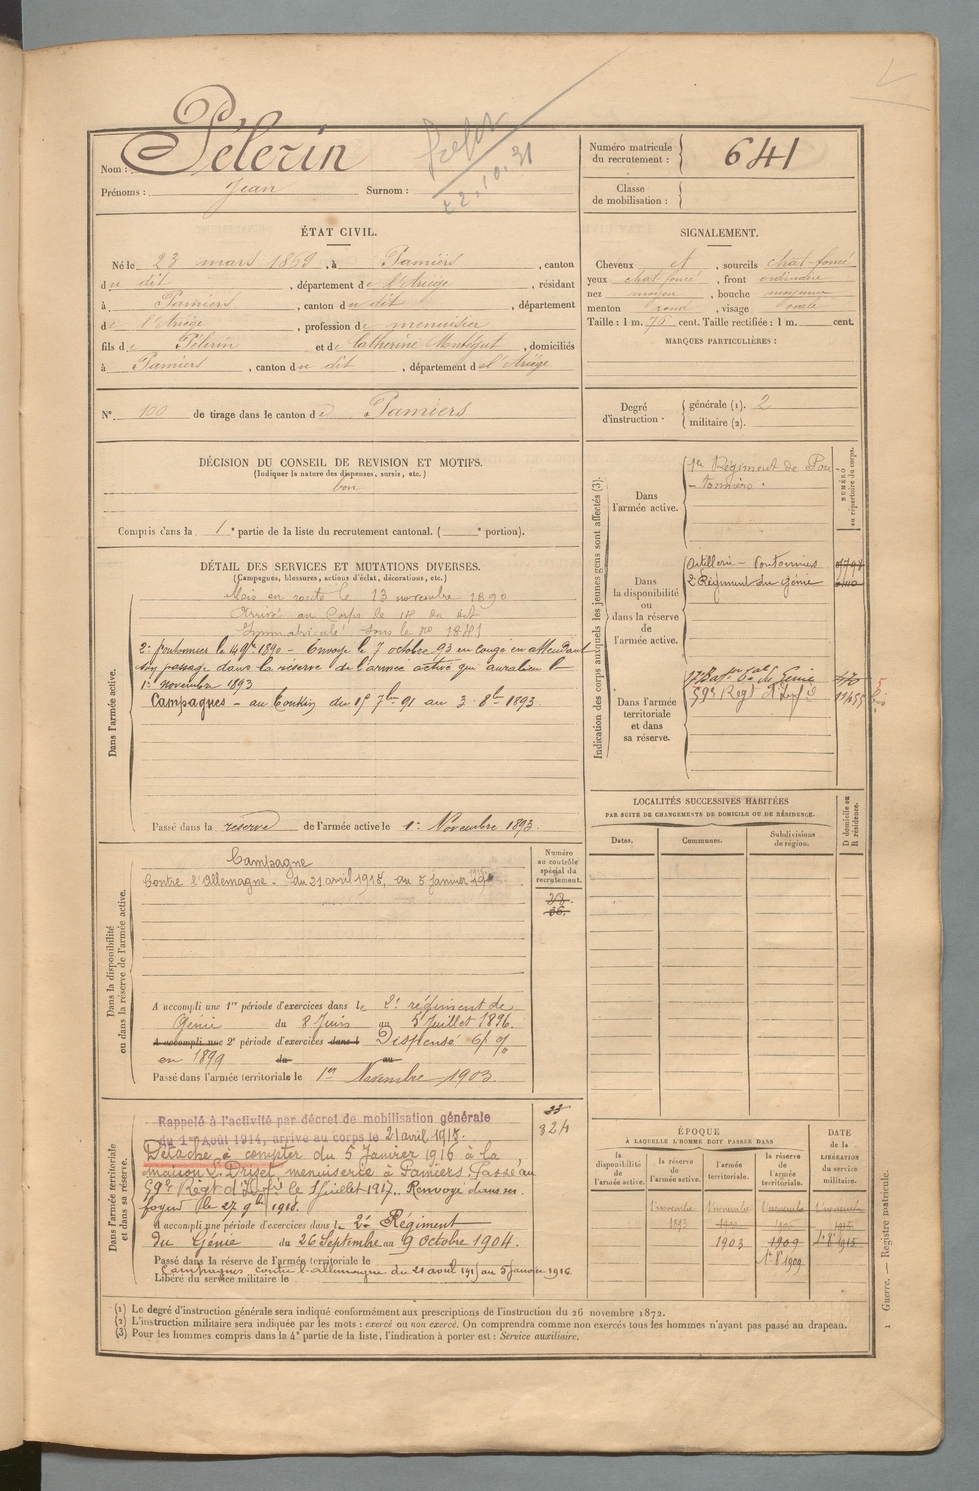 Nom : Pélerin
Prénoms : Jean Surnom :
22.10.31
Numéro matricule
du recrutement : 641
Classe
de mobilisation :
ÉTAT CIVIL.
Né le 23 mars 1869, à Pamiers, canton
du dit, département de l'Ariège, résidant
à Pamiers, canton du dit, département
de l'Ariège, profession de menuisier
fils de Pélerin et de Catherine Montségut, domiciliés
à Pamiers, canton du dit, département de l'Ariège
N° 100 de tirage dans le canton de Pamiers
SIGNALEMENT.
Cheveux et, sourcils chat-foncé
yeux chat foncé, front ordinaire
nez moyen, bouche moyenne
menton rond, visage ovale
Taille : 1 m. 75 cent. Taille rectifiée : 1 m. cent.
MARQUES PARTICULIÈRES :
Degré
d'instruction
générale (1). 2
militaire (2).
DÉCISION DU CONSEIL DE REVISION ET MOTIFS.
(Indiquer la nature des dispenses, sursis, etc.)
bon
Compris dans la 1e partie de la liste du recrutement cantonal. ( e portion).
DÉTAIL DES SERVICES ET MUTATIONS DIVERSES.
(Campagnes, blessures, actions d'éclat, décorations, etc.)
Dans l'armée active.
Mis en route le 13 novembre 1890
Arrivé au Corps le 14 du dit
Immatriculé sous le no
2e pontonnier le 14 9bre 1890 - Envoyé le 7 octobre 93 en congé en attendant
son passage dans la réserve de l'armée active qui aura lieu le
1er novembre 1893
Campagnes - au Tonkin du 15 7bre 91 au 3 8bre 1893.
Passé dans la réserve de l'armée active le 1er Novembre 1893.
Indication des corps auxquels les jeunes gens sont affectés (3).
NUMÉRO
au répertoire du corps.
Dans
l'armée active.
1er Régiment de Pon-
-tonniers.
Dans
la disponibilité
ou
dans la réserve
de
l'armée active.
Artillerie - Pontonniers
2e Régiment du Génie
Dans l'armée
territoriale
et dans
sa réserve.
17e Baton Tal du Génie
59e Régt d'Infie
LOCALITÉS SUCCESSIVES HABITÉES
PAR SUITE DE CHANGEMENTS DE DOMICILE OU DE RÉSIDENCE.
Dates.
Communes.
Subdivisions
de région.
D domicile ou
R résidence.
Dans la disponibilité
ou dans la réserve de l'armée active.
Numéro
au contrôle
spécial du
recrutement.
Campagne
Contre l'Allemagne - du 21 avril 1915, au 5 janvier 1916
A accompli une 1re période d'exercices dans le 2e régiment de
Génie du 8 Juin au 5 Juillet 1896.
A accompli une 2e période d'exercices dans l Dispensé 6 %
en 1899 du au
Passé dans l'armée territoriale le 1er Novembre 1903.
Dans l'armée territoriale
et dans sa réserve.
33
324
Rappelé à l'activité par décret de mobilisation générale
du 1er Août 1914, arrivé au corps le 21 avril 1915.
Détaché à compter du 5 Janvier 1916 à la
maison menuiserie à Pamiers. Passé au
59e Régt d'Infie le 1 juillet 1917. Renvoyé dans ses
foyers le 27 9bre 1918.
A accompli une période d'exercices dans le 2e Régiment
du Génie du 26 Septembre au 9 octobre 1904.
Passé dans la réserve de l'armée territoriale le
Campagnes contre l'Allemagne du 21 avril 1915 au 5 janvier 1916
Libéré du service militaire le
ÉPOQUE
À LAQUELLE L'HOMME DOIT PASSER DANS
DATE
de la
LIBÉRATION
du service
militaire.
la
disponibilité
de
l'armée active.
la réserve
de
l'armée active.
l'armée
territoriale.
la réserve
de
l'armée
territoriale.
1er novembre 1er novembre 1er novembre 1er novembre
1893
1903 1909 1er 8bre 1915
1er 8bre 1909
(1) Le degré d'instruction générale sera indiqué conformément aux prescriptions de l'instruction du 26 novembre 1872.
(2) L'instruction militaire sera indiquée par les mots : exercé ou non exercé. On comprendra comme non exercés tous les hommes n'ayant pas passé au drapeau.
(3) Pour les hommes compris dans la 4e partie de la liste, l'indication à porter est : Service auxiliaire.
1 Guerre. — Registre matricule.